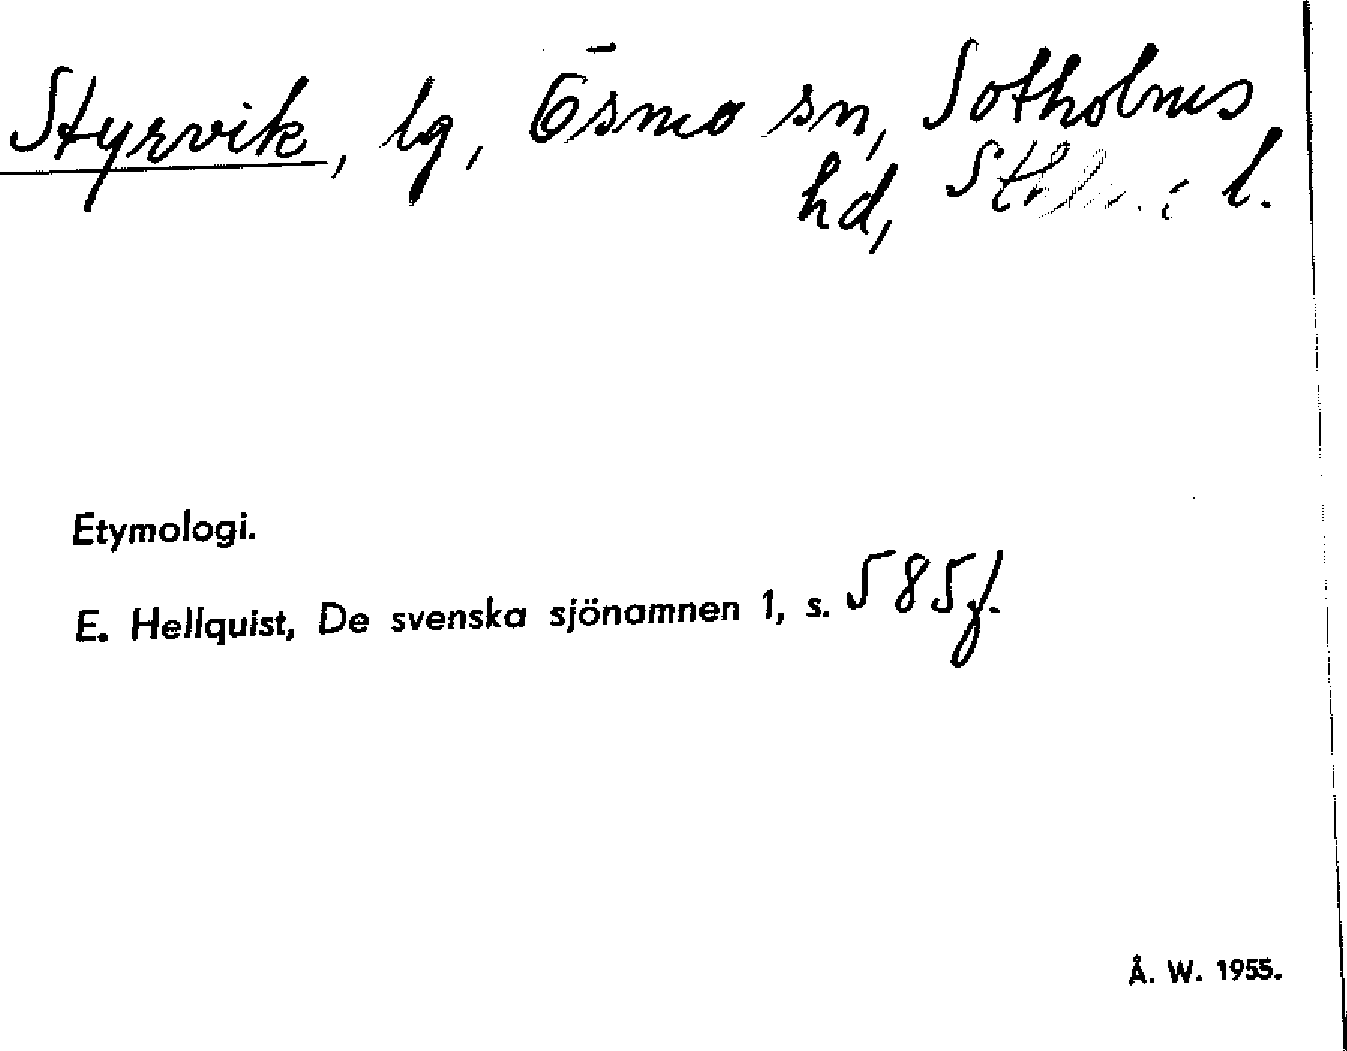 Styrvik, lg, Ösmo sn, Sotholms
hd, Sthlms l.
Etymologi.
E. Hellquist, De svenska sjönamnen 1, s. 585 f.
Å. W. 1955.